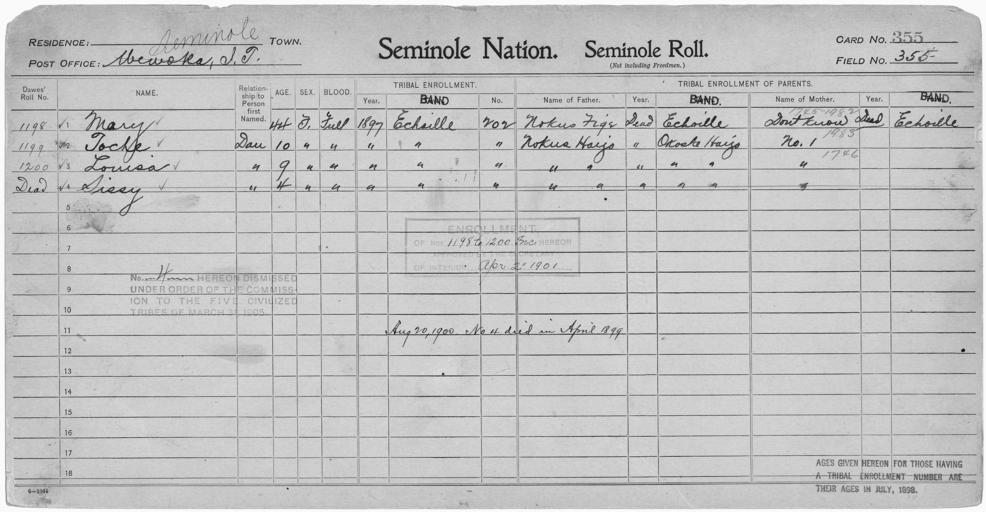 RESIDENCE: Seminole TOWN.
POST OFFICE: Wewoka, I.T.
Seminole Nation. Seminole Roll.
(Not including Freedmen.)
CARD NO. 355
FIELD NO. 355
Dawes' Roll No. NAME. Relationship to Person first Named. AGE. SEX. BLOOD. TRIBAL ENROLLMENT. TRIBAL ENROLLMENT OF PARENTS.
Year. BAND No. Name of Father. Year. BAND. Name of Mother. Year. BAND.
1198 1 Mary 44 F. Full 1897 Echoille 202 Nokus Dead Echoille Dont know Dead Echoille
1199 2 Dau 10 " " " " " Nokus Harjo " Okoske Harjo No. 1
1200 3 Louisa " 9 " " " " " " " " " " "
Dead 4 Sissy " 4 " " " " " " " " " " "
5
6
7
8
9
10
11
12
13
14
15
16
17
18
ENROLLMENT
OF NOS. 1198 to 1200 Inc. HEREON
OF INTERIOR Apr 2 1901
No. 4 HEREON DISMISSED
UNDER ORDER OF THE COMMISSION TO THE FIVE CIVILIZED
TRIBES OF MARCH 31, 1905.
Aug 20, 1900 No 4 died in April 1899
AGES GIVEN HEREON FOR THOSE HAVING
A TRIBAL ENROLLMENT NUMBER ARE
THEIR AGES IN JULY, 1898.